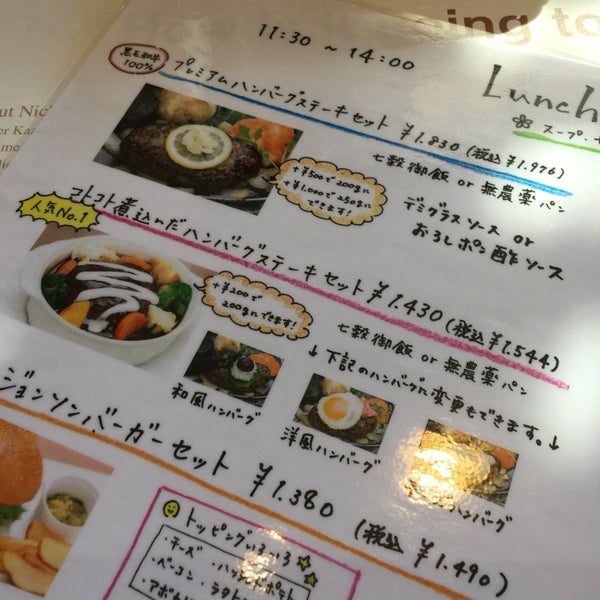 11:30 ～ 14:00
Lunch
スープ・
黒毛和牛
100%
プレミアムハンバーグステーキセット ¥1.830 (税込 ¥1.976)
七穀御飯 or 無農薬パン
デミグラスソース or
おろしポン酢ソース
+¥500で200gに
+¥1.000で250gに
できます!
人気No.1
コトコト煮込んだハンバーグステーキセット ¥1.430 (税込 ¥1.544)
+¥200で
200gにできます!
七穀御飯 or 無農薬パン
↓下記のハンバーグに変更もできます。↓
和風ハンバーグ
洋風ハンバーグ
ハンバーグ
ジョンソンバーガーセット ¥1.380 (税込 ¥1.490)
トッピングいろいろ
・チーズ
・ベーコン